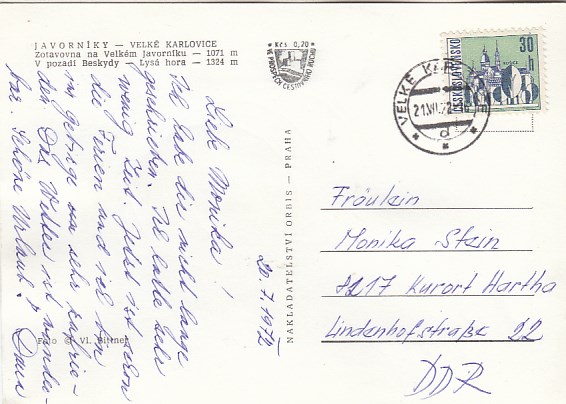 JAVORNÍKY — VELKÉ KARLOVICE
Zotavovna na Velkém Javorníku — 1071 m
V pozadí Beskydy — Lysá hora — 1324 m
Kčs 0,20
VE PROSPĚCH CESTOVNÍHO RUCHU
ČESKOSLOVENSKO
30 h
KOŠICE
VELKÉ KARLOVICE
21.VII.72
d
Liebe Monika!
Ich habe dir nicht lange
geschrieben. Ich hatte sehr
wenig Zeit. Jetzt ist schon
die Ferien und ich bin
mit gefüge sehr zufrie-
den. Das Wetter ist wunder-
bar. Schöne Urlaub.
20.7.1972
NAKLADATELSTVÍ ORBIS — PRAHA
Foto © Vl. Bittner
Fräulein
Monika Stein
8217 Kurort Hartha
Lindenhofstraße 22
DDR